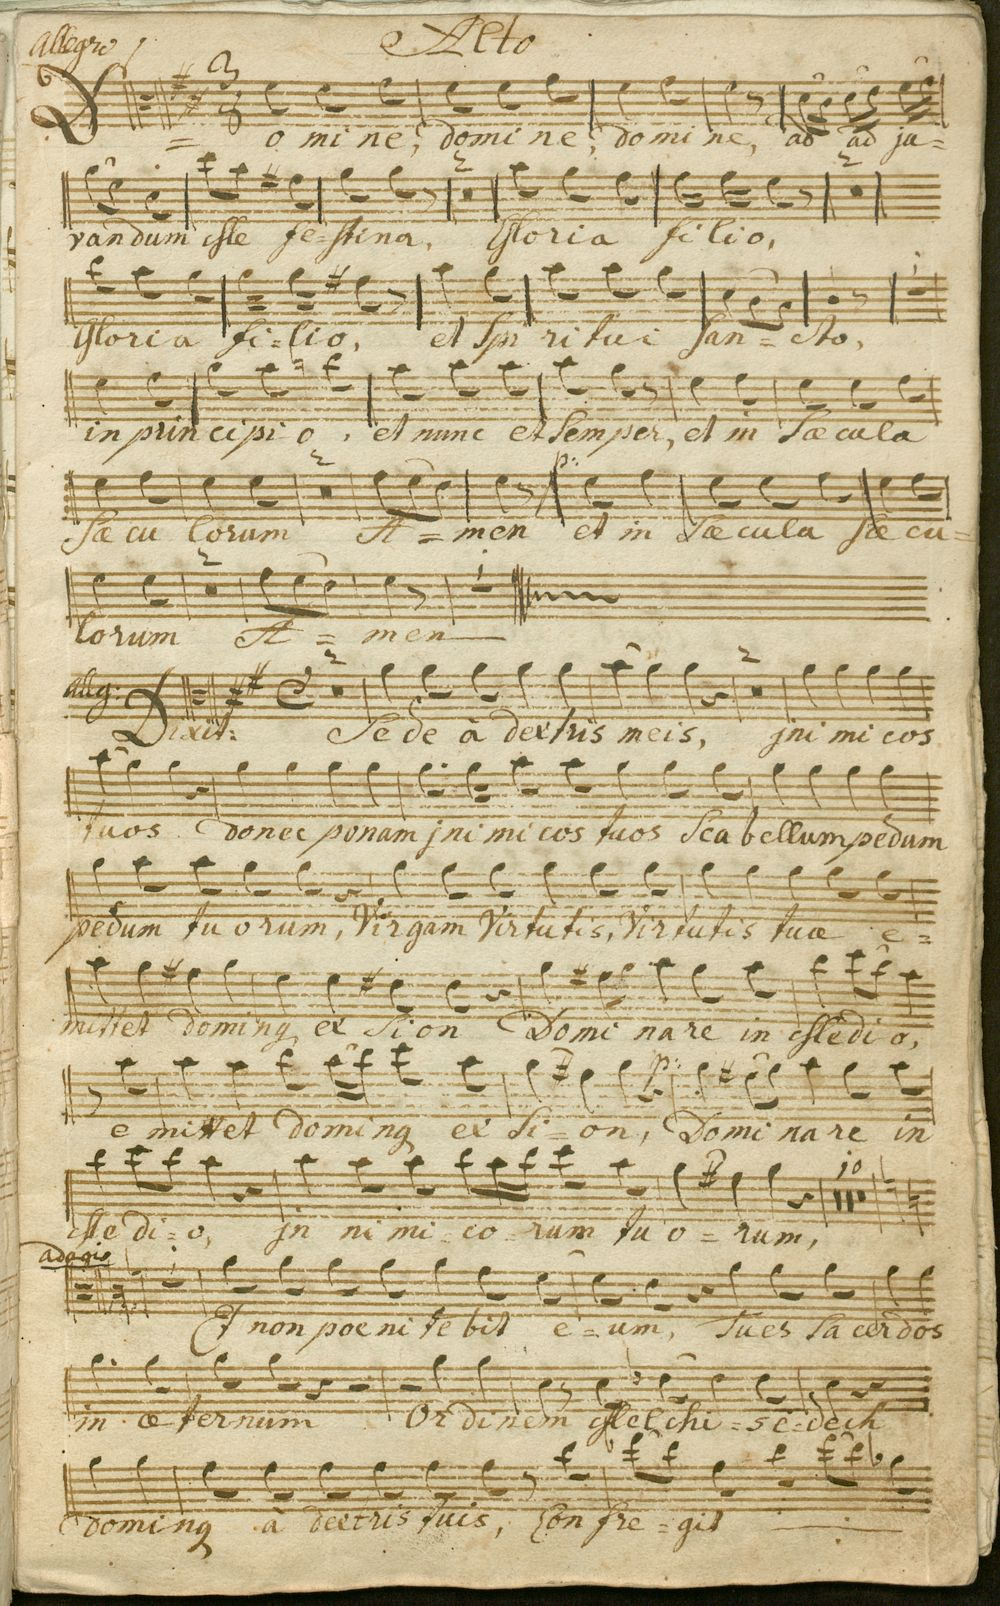 Allegro Alto
Domine, domine, domine, ad ad ju=
vandum me fe=stina, Gloria filio,
Gloria fi=lio, et Spiritui San=cto,
in principio, et nunc et Semper, et in Sæcula
Sæcu lorum A=men et in Sæcula Sæcu=
lorum A=men
allg:
Dixit: Sede à dextris meis, jnimicos
tuos donec ponam jnimicos tuos Scabellum pedum
pedum tuorum, Virgam Virtutis, Virtutis tuæ e=
mittet dominq ex Sion Dominare in medio,
emittet dominq ex Si=on, Dominare in
medi=o, jn nimi=co=rum tuo=rum,
10
adagio
Et non poenitebit e=um, tu es Sacerdos
in æternum Ordinem Melchi=se=dech
dominq à dextris tuis, Confre=git